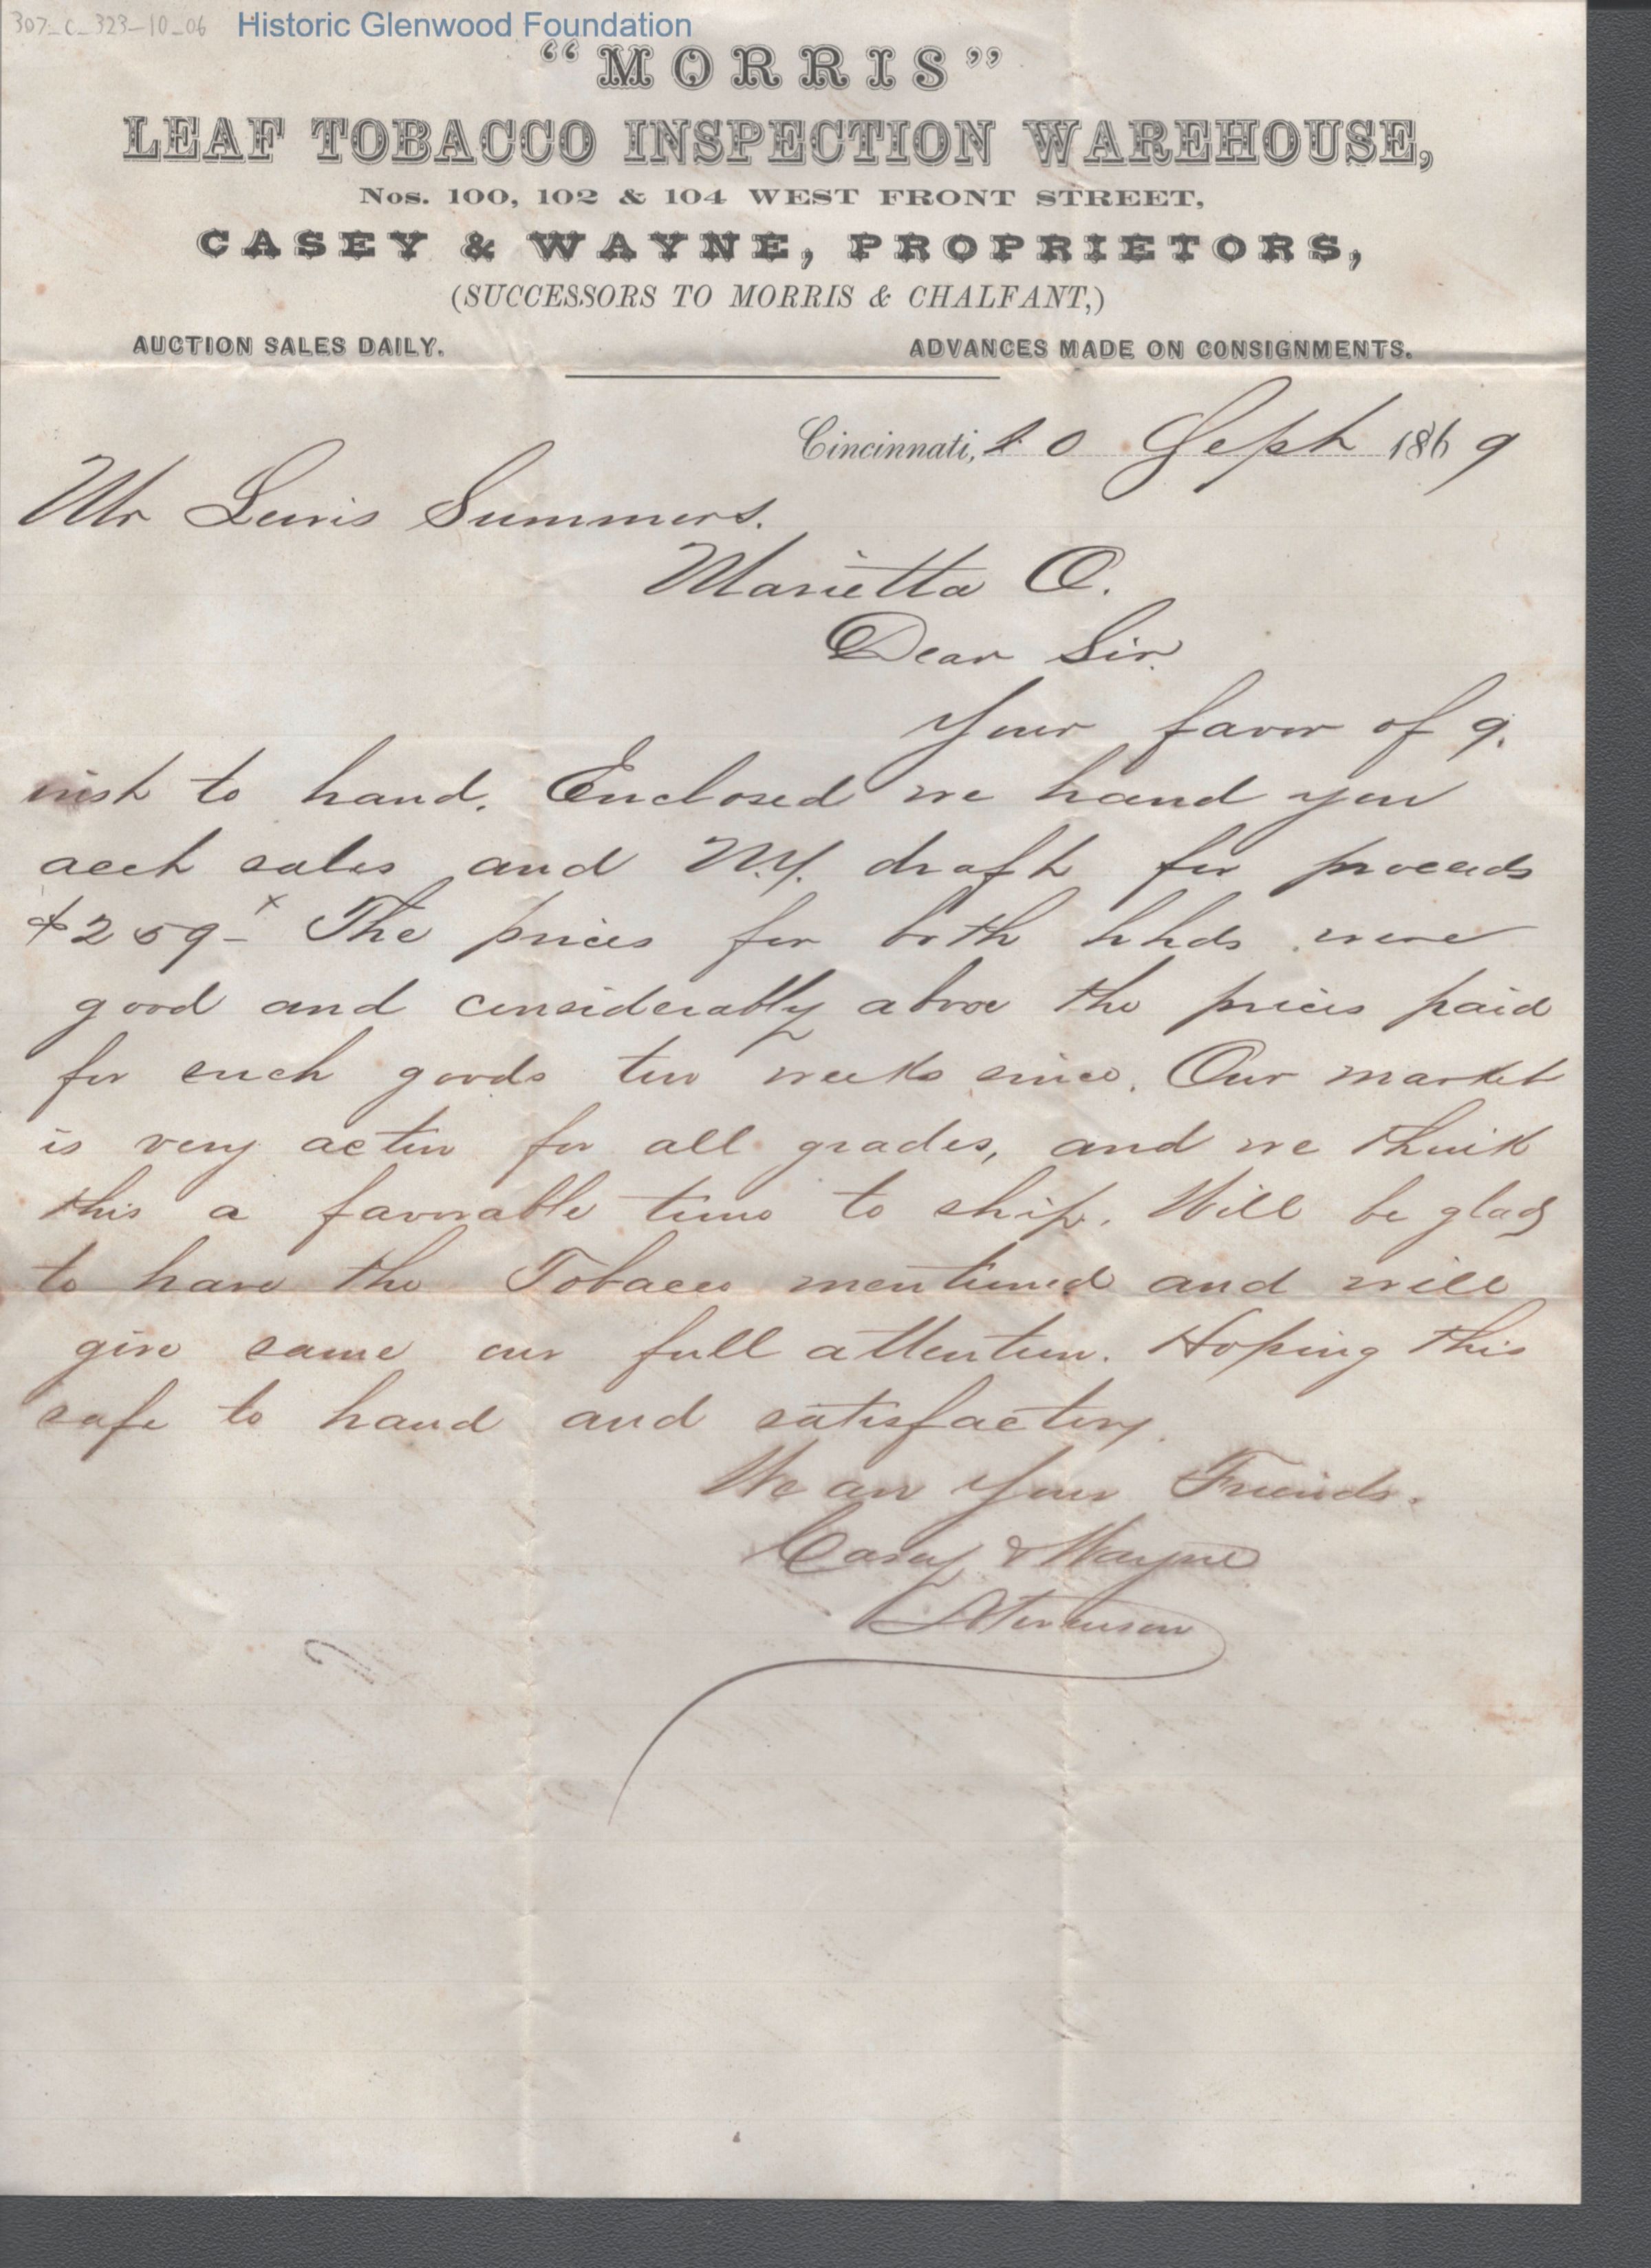 307_C_323-10_06 Historic Glenwood Foundation
"MORRIS"
LEAF TOBACCO INSPECTION WAREHOUSE,
Nos. 100, 102 & 104 WEST FRONT STREET,
CASEY & WAYNE, PROPRIETORS,
(SUCCESSORS TO MORRIS & CHALFANT,)
AUCTION SALES DAILY. ADVANCES MADE ON CONSIGNMENTS.
Cincinnati, Sept 1869
Mr Lewis Summers.
Marietta O.
Dear Sir.
Your favor of 9.
inst to hand. Enclosed we hand you
acct sales and N.Y. draft for proceeds
$259 - x The prices for both hhds were
good and considerably above the prices paid
for such goods two weeks since. Our market
is very active for all grades, and we think
this a favorable time to ship. Will be glad
to have the Tobacco mentioned and will
give same our full attention. Hoping this
safe to hand and satisfactory.
We are Your Friends.
Casey & Wayne